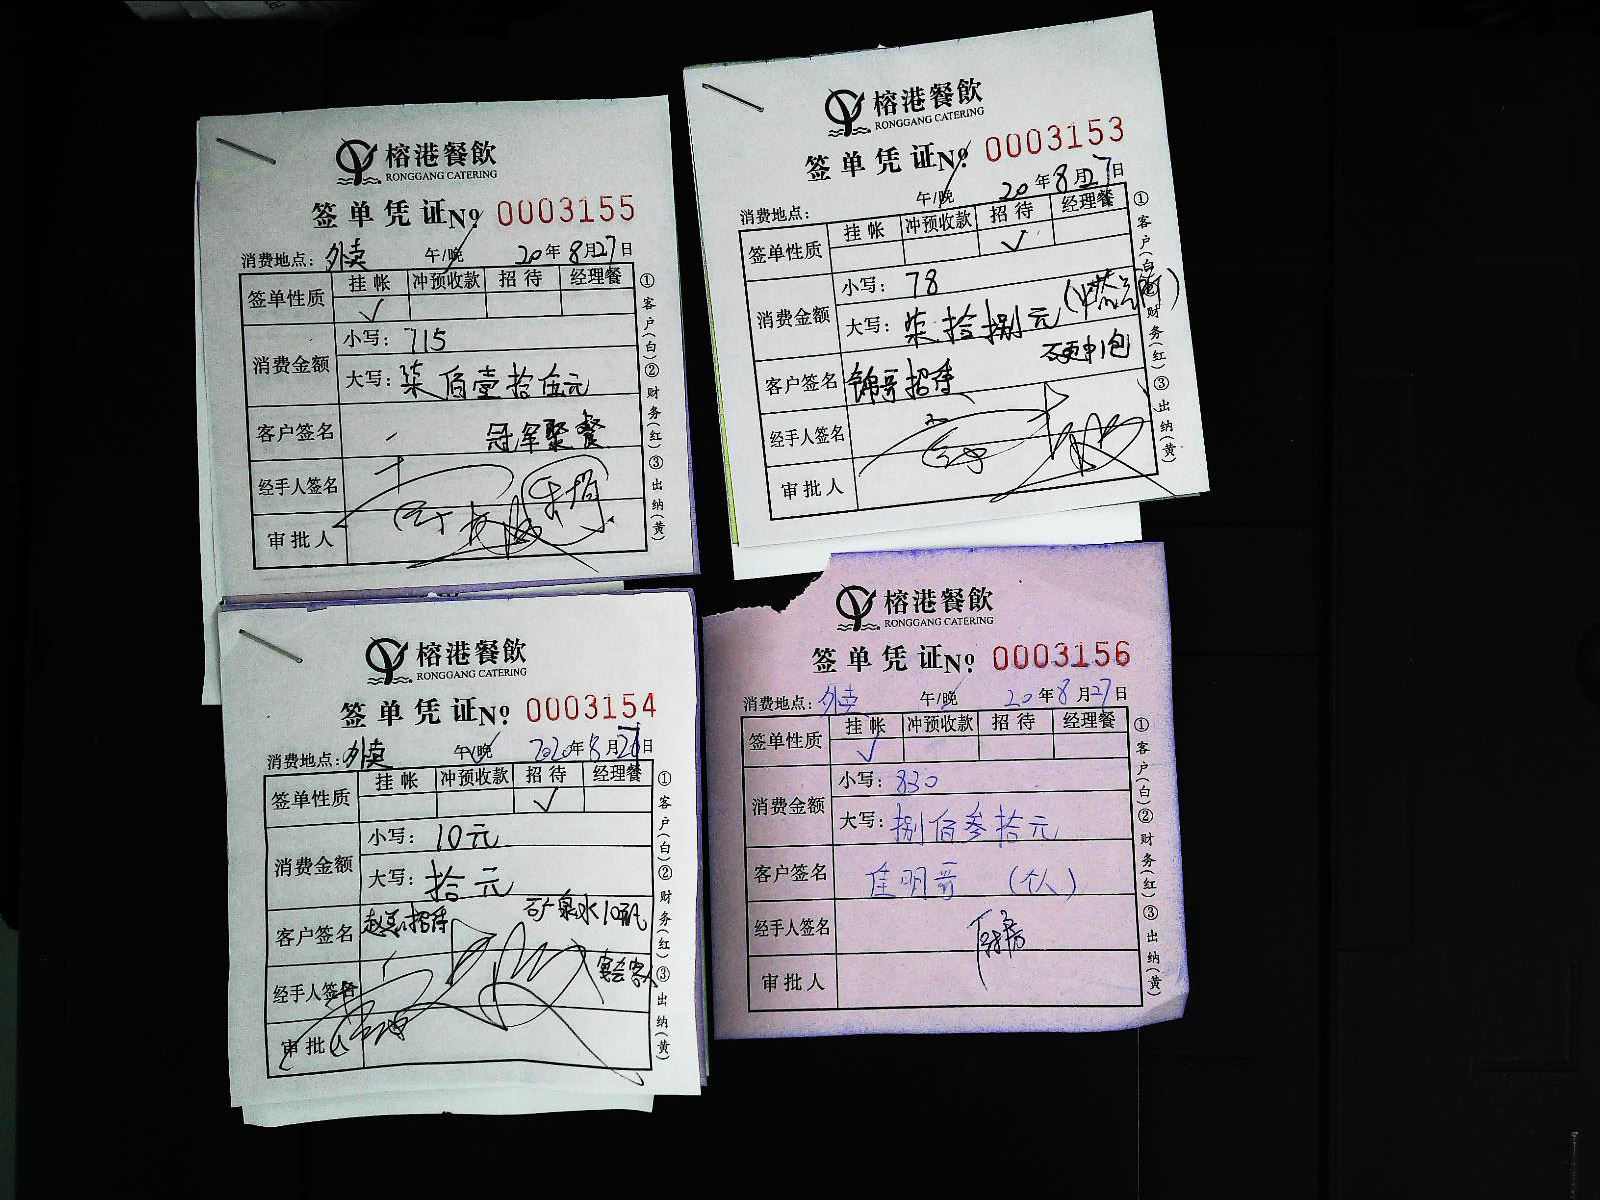 榕港餐飲
RONGGANG CATERING
签单凭证 № 0003155
消费地点：外卖 午/晚 20年8月27日
签单性质 挂帐 冲预收款 招待 经理餐
✓
消费金额 小写：715
大写：柒佰壹拾伍元
客户签名 冠军聚餐
经手人签名
审批人
①客户(白)②财务(红)③出纳(黄)
榕港餐飲
RONGGANG CATERING
签单凭证 № 0003153
消费地点： 午/晚 20年8月27日
签单性质 挂帐 冲预收款 招待 经理餐
✓
消费金额 小写：78
大写：柒拾捌元
硬中1包
客户签名 锦哥招待
经手人签名
审批人
①客户(白)②财务(红)③出纳(黄)
榕港餐飲
RONGGANG CATERING
签单凭证 № 0003154
消费地点：外卖 午/晚 2020年8月27日
签单性质 挂帐 冲预收款 招待 经理餐
✓
消费金额 小写：10元
大写：拾元
矿泉水10瓶
客户签名 赵总招待
宴会客人
经手人签名
审批人
①客户(白)②财务(红)③出纳(黄)
榕港餐飲
RONGGANG CATERING
签单凭证 № 0003156
消费地点：外卖 午/晚 20年8月27日
签单性质 挂帐 冲预收款 招待 经理餐
✓
消费金额 小写：830
大写：捌佰叁拾元
客户签名 明哥 （个人）
经手人签名
审批人
①客户(白)②财务(红)③出纳(黄)